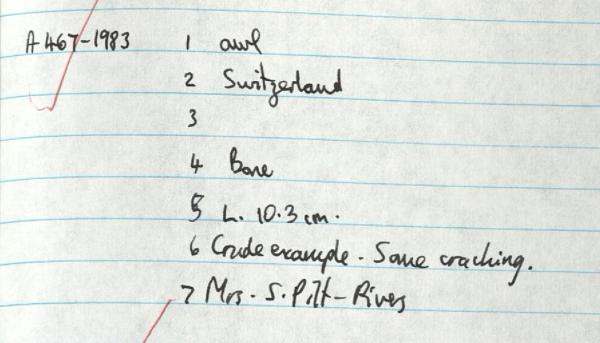 A 467-1983 1 awl
2 Switzerland
3
4 Bone
5 L. 10.3 cm.
6 Crude example. Some cracking.
7 Mrs. S. Pitt-Rivers